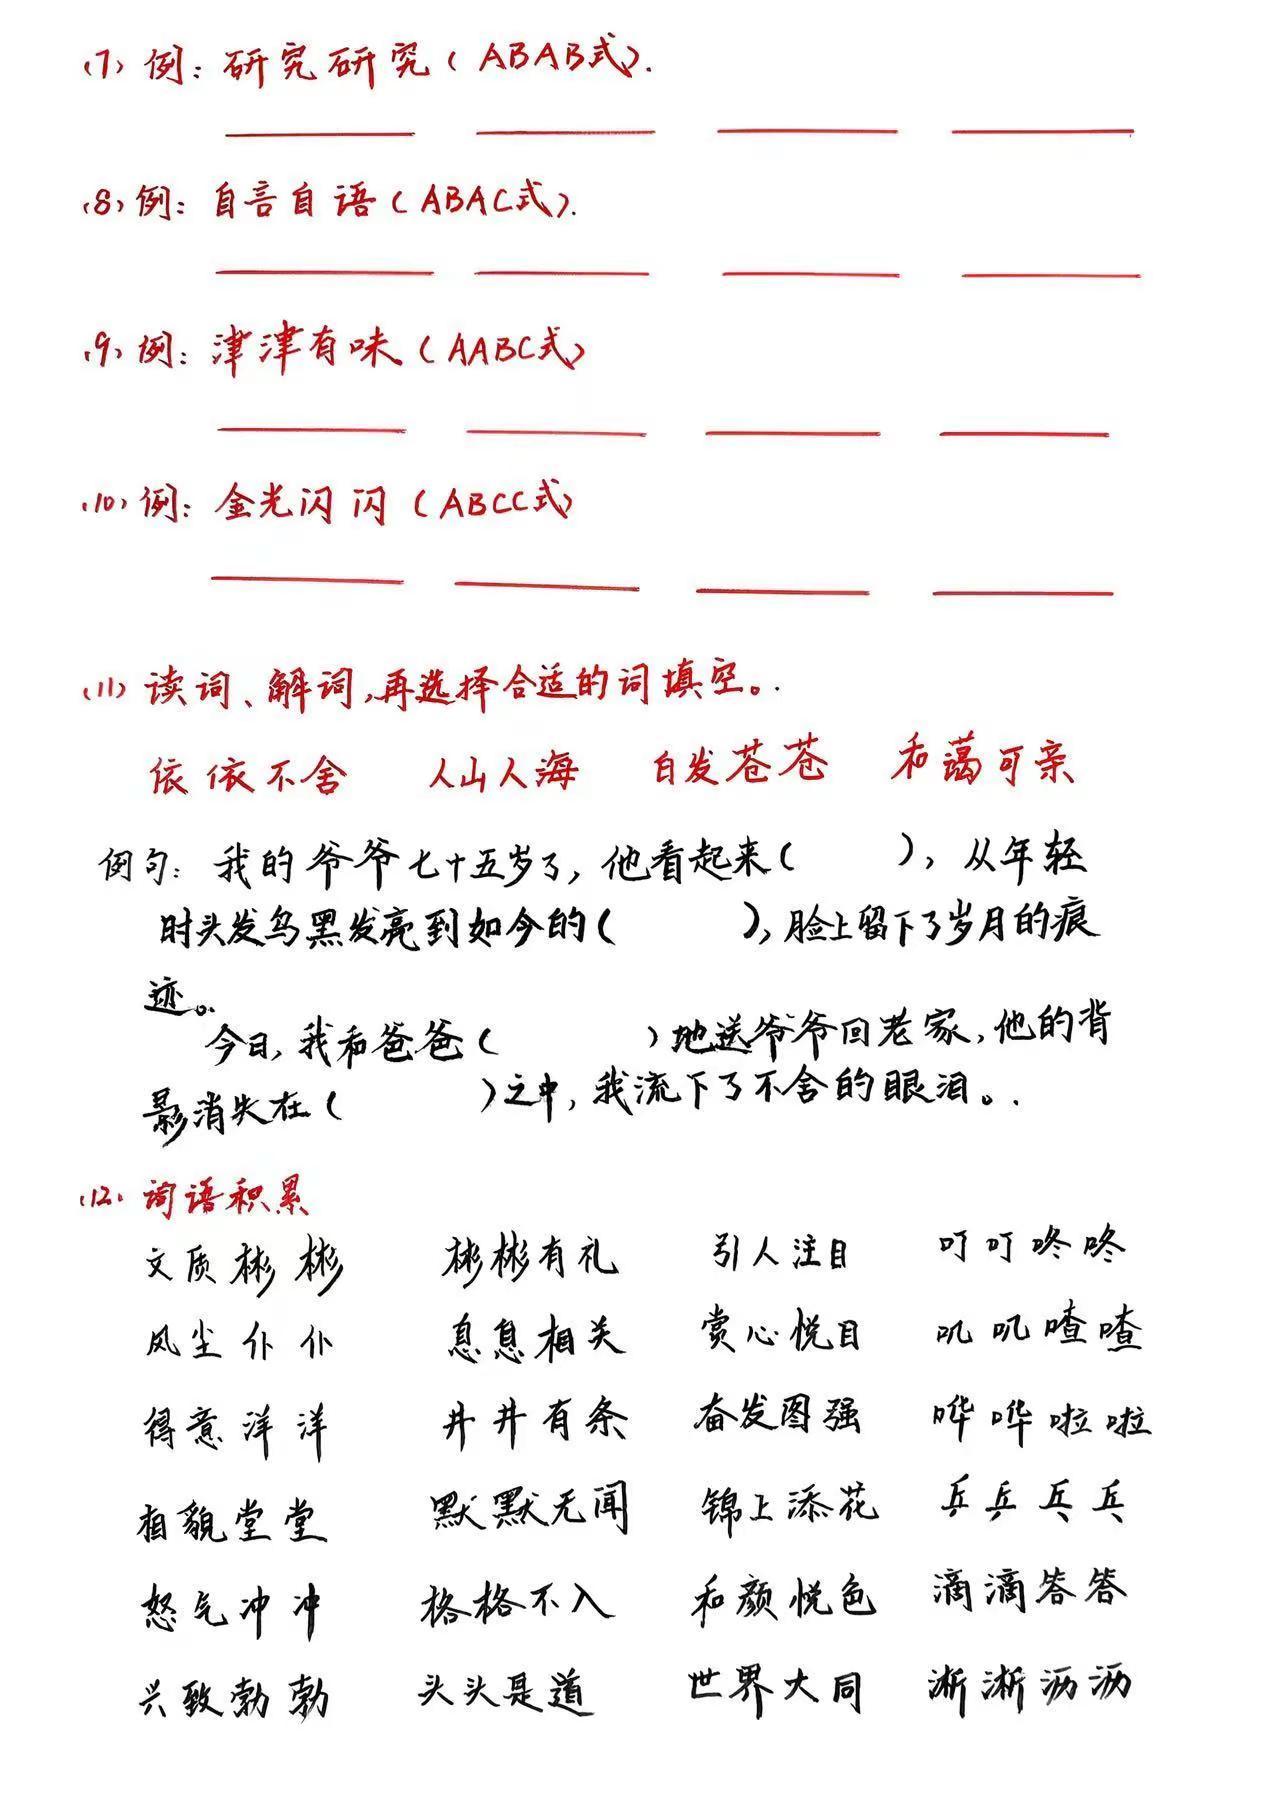 (7) 例：研究研究（ABAB式）.
(8) 例：自言自语（ABAC式）.
(9) 例：津津有味（AABC式）
(10) 例：金光闪闪（ABCC式）
(11) 读词、解词,再选择合适的词填空。.
依依不舍 人山人海 白发苍苍 和蔼可亲
例句：我的爷爷七十五岁了，他看起来（ ），从年轻
时头发乌黑发亮到如今的（ ），脸上留下了岁月的痕
迹。
今日,我和爸爸（ ）地送爷爷回老家,他的背
影消失在（ ）之中,我流下了不舍的眼泪。.
(12) 词语积累
文质彬彬 彬彬有礼 引人注目 叮叮咚咚
风尘仆仆 息息相关 赏心悦目 叽叽喳喳
得意洋洋 井井有条 奋发图强 哗哗啦啦
相貌堂堂 默默无闻 锦上添花 乒乒乓乓
怒气冲冲 格格不入 和颜悦色 滴滴答答
兴致勃勃 头头是道 世界大同 淅淅沥沥